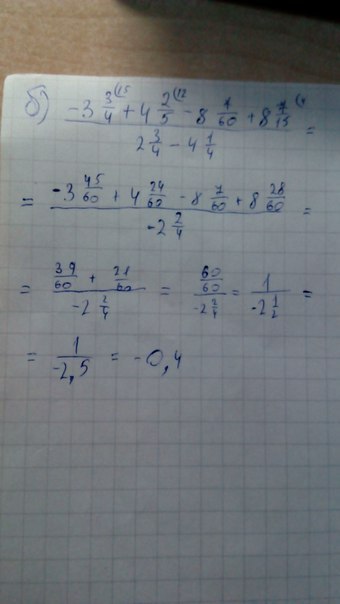 б) (-3 3/4(15 + 4 2/5(12 - 8 7/60 + 8 7/15(4) / (2 3/4 - 4 1/4) =
= (-3 45/60 + 4 24/60 - 8 7/60 + 8 28/60) / (-2 2/4) =
= (39/60 + 21/60) / (-2 2/4) = (60/60) / (-2 2/4) = 1 / (-2 1/2) =
= 1 / (-2,5) = -0,4